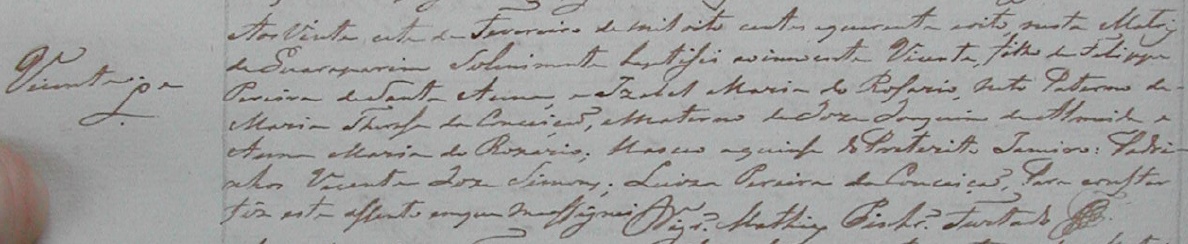 Vicente pe
Aos vinte e sete de Fevereiro de mil oito centos e quarenta e oito, nesta Matriz
de Guaraparim Solenimente baptisei ao innocente Vicente, filho de Felippe
Pereira de Santa Anna, e Izabel Maria do Rosario, Neto Paterno de
Maria Thereza da Conceição, e Materno de Joze Joaquim de Almeida e
Anna Maria do Rozario; Nasceo a quinse do Preterito Janeiro: Padri-
nhos Vicente Joze Simoens; Luiza Pereira da Conceição, Para constar
fiz este assento em que me assignei Vigr.º Mathias Furtado